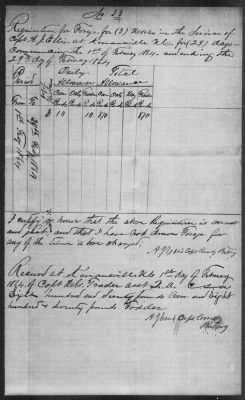 No 33
Requisition for Forage for (3) Horses in the Service of
Capt A J Ellis at Kenansville N.C. for (29) days
Commencing the 1st of February 1864 and ending the
29th day of February 1864
Period
Daily Allowance
Total Allowance
From
To
Corn
Fodder
1st Feby 1864
29th Feby 1864
3 10 10 870 870
I certify on honor that the above Requisition is correct
and just, and that I have not drawn Forage for
any of the time above charged,
A J Ellis Capt Comdg Battery
Received at Kenansville N.C. 1st day of February
1864 of Capt Asst Q.M.
Eight hundred and Seventy pounds Corn and Eight
hundred & Seventy pounds Fodder
A J Ellis Capt Comdg
Battery